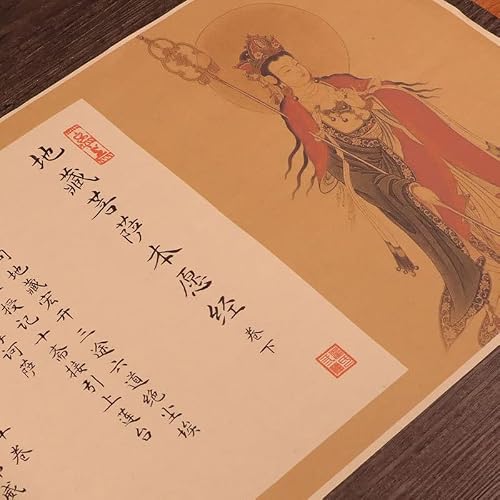 地藏菩萨本愿经
卷下
地藏宏开三途六道绝尘埃
授记十斋接引上连台
诃萨
卷
威